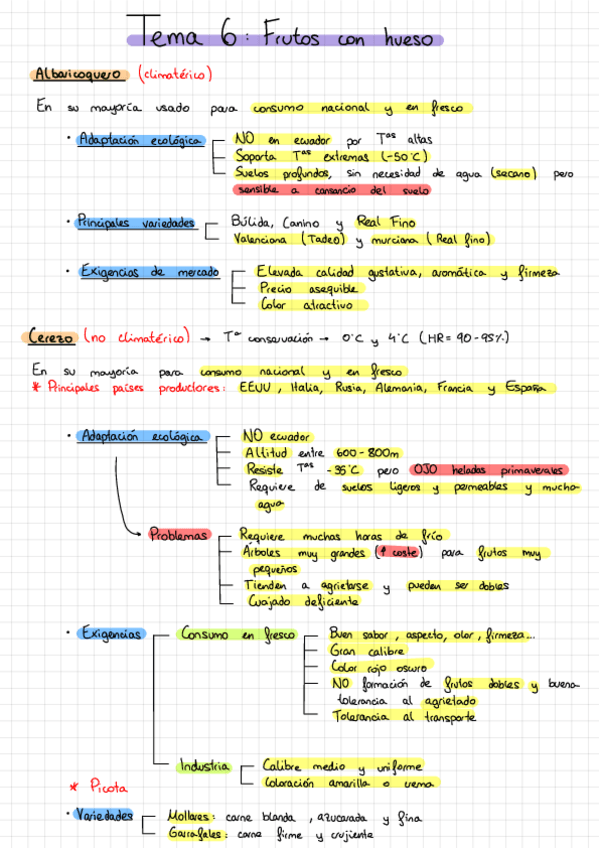 Tema 6: Frutos con hueso
Albaricoquero (climatérico)
En su mayoría usado para consumo nacional y en fresco
• Adaptación ecológica
NO en ecuador por Tas altas
Soporta Tas extremas (-50°C)
Suelos profundos, sin necesidad de agua (secano) pero
sensible a cansancio del suelo
• Principales variedades
Búlida, Canino y Real Fino
Valenciana (Tadeo) y murciana (Real fino)
• Exigencias de mercado
Elevada calidad gustativa, aromática y firmeza
Precio asequible
Color atractivo
Cerezo (no climatérico) → Ta conservación → 0°C y 4°C (HR= 90-95%)
En su mayoría para consumo nacional y en fresco
* Principales países productores: EEUU, Italia, Rusia, Alemania, Francia y España
• Adaptación ecológica
NO ecuador
Altitud entre 600-800m
Resiste Tas -35°C pero OJO heladas primaverales
Requiere de suelos ligeros y permeables y mucha
agua
Problemas
Requiere muchas horas de frío
Árboles muy grandes (↑ coste) para frutos muy
pequeños
Tienden a agrietarse y pueden ser dobles
Cuajado deficiente
• Exigencias
Consumo en fresco
Buen sabor, aspecto, olor, firmeza...
Gran calibre
Color rojo oscuro
NO formación de frutos dobles y buena
tolerancia al agrietado
Tolerancia al transporte
Industria
Calibre medio y uniforme
Coloración amarilla o crema
* Picota
• Variedades
Mollares: carne blanda, azucarada y fina
Garrafales: carne firme y crujiente